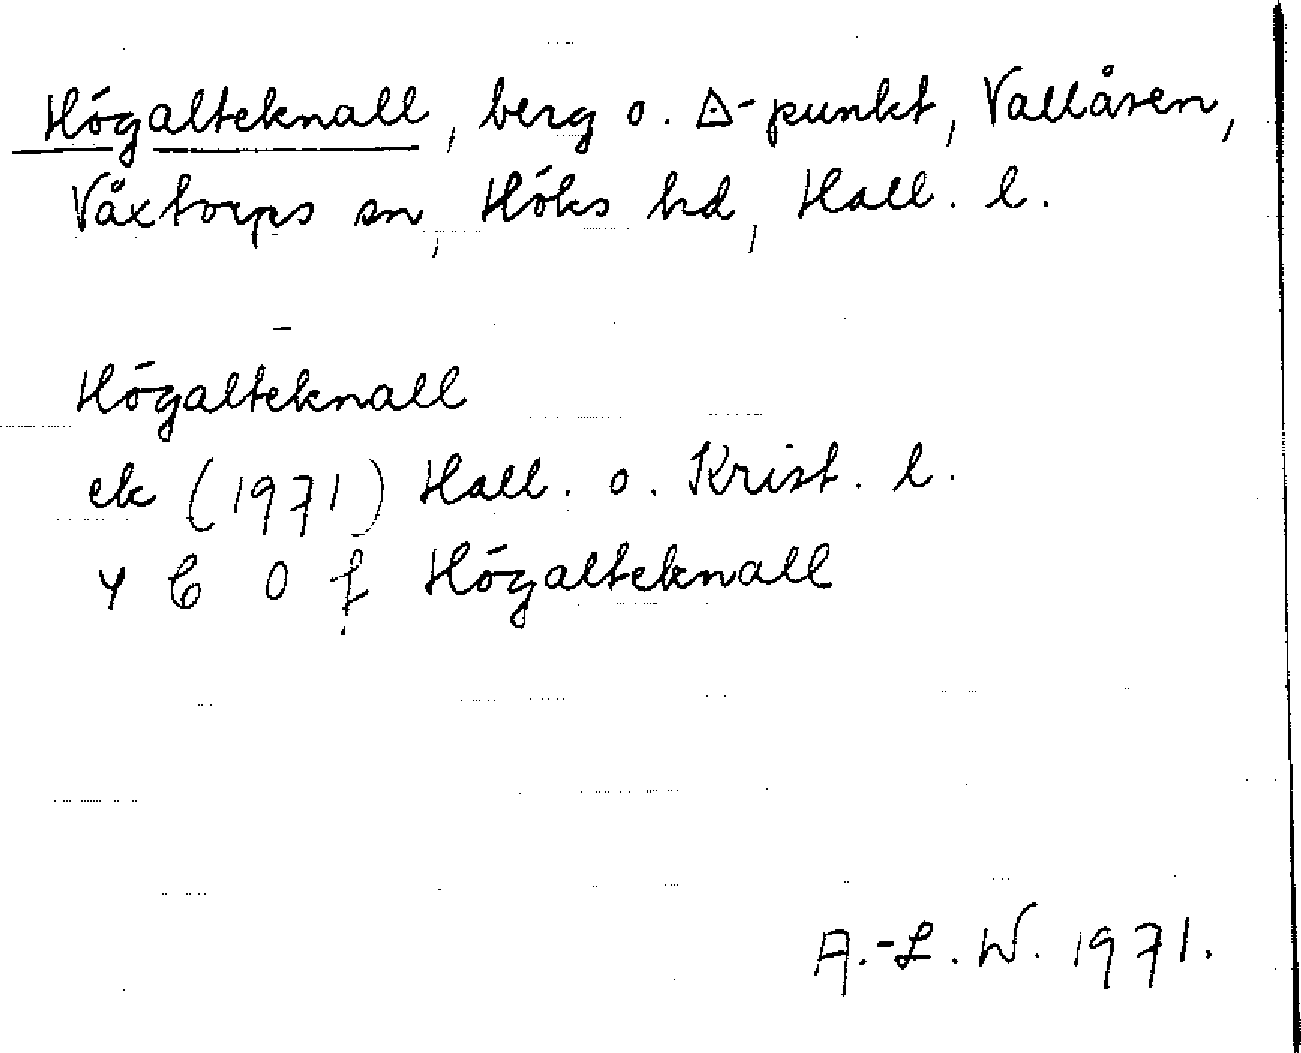 Högalteknall, berg o. △-punkt, Vallåsen,
Våxtorps sn, Höks hd, Hall. l.
Högalteknall
ek (1971) Hall. o. Krist. l.
4 C 0 f Högalteknall
A.-L. W. 1971.